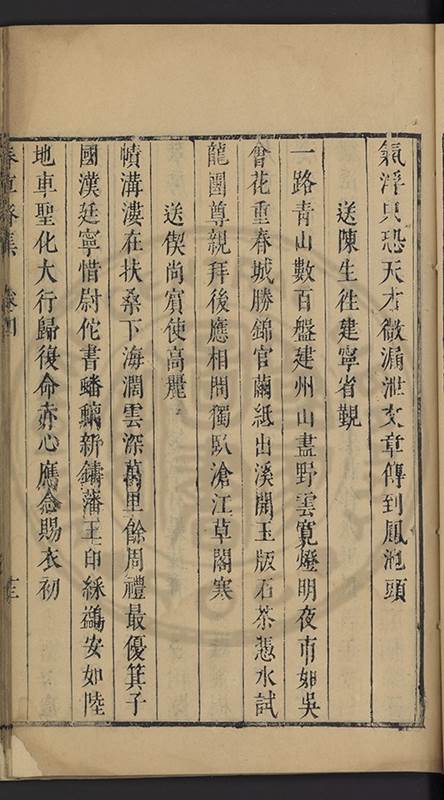 氣浮只恐天才微漏泄文章傳到鳳池頭
送陳生徃建寧省覲
一路青山數百盤建州山盡野雲寬燈明夜市如吳
會花重春城勝錦官繭紙出溪開玉版石茶憑水試
龍團尊親拜後應相問獨臥滄江草閣寒
送偰尚賔使高麗
幘溝漊在扶桑下海濶雲深萬里餘周禮最優箕子
國漢廷寧惜尉佗書蟠螭新鑄藩王印綵鷁安如陸
地車聖化大行歸復命赤心應念賜衣初
集 卷四